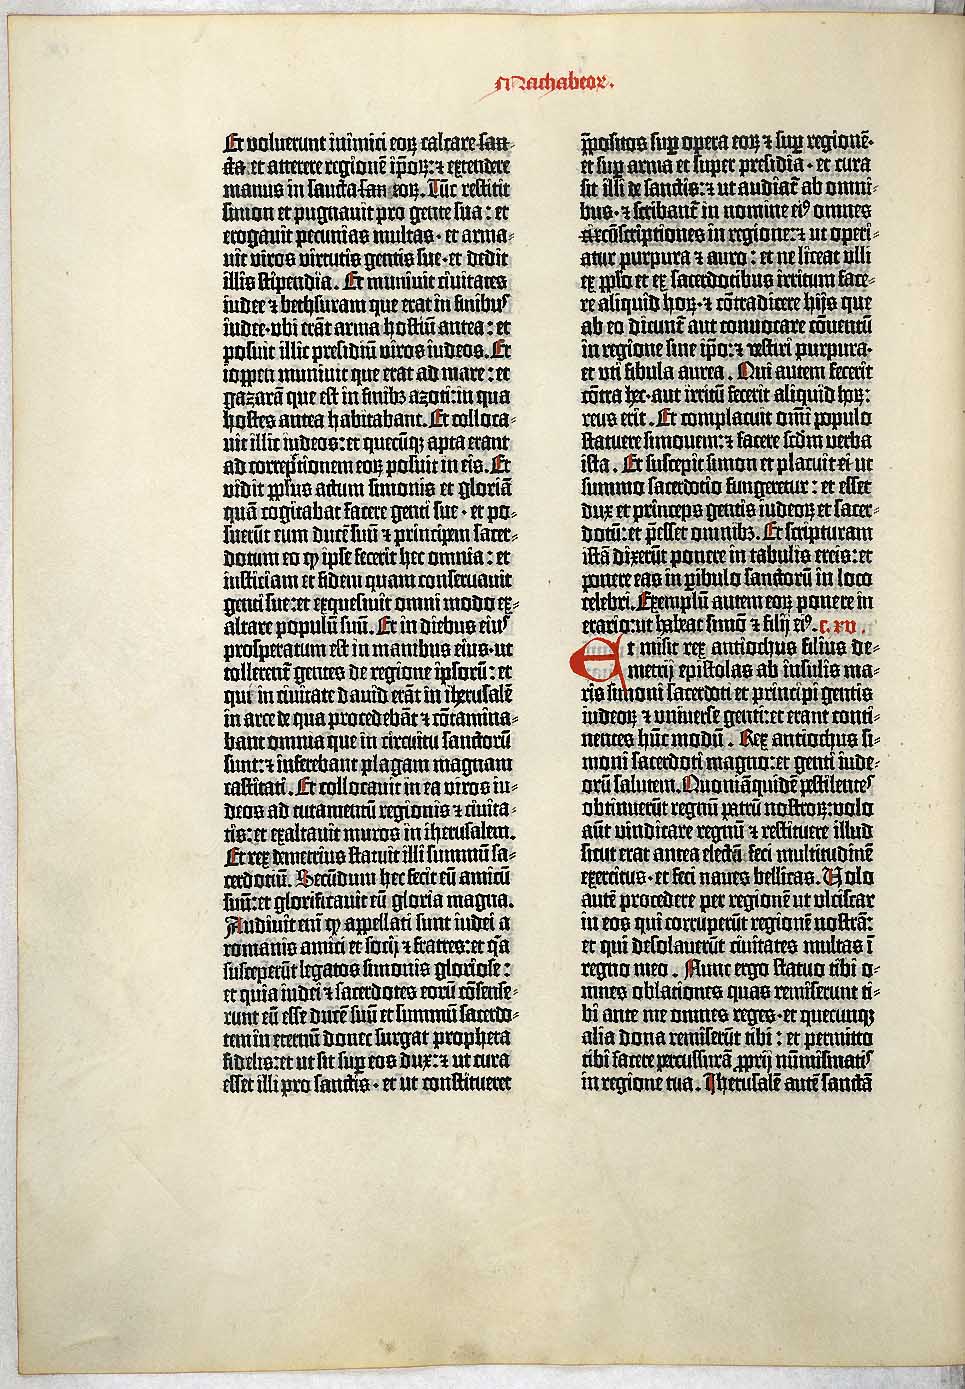 Machabeoꝝ.
Et voluerunt inimici eoꝝ calcare san-
cta et atterere regionē ip̄oꝝ: ⁊ extendere
manus in sancta eoꝝ. Tūc restitit
simon et pugnavit pro gente sua: et
erogavit pecunias multas · et arma-
vit viros virtutis gentis sue · et dedit
illis stipendia. Et munivit civitates
iudee ⁊ bethsuram que erat in finibꝰ
iudee · ubi erāt arma hostiū antea: et
posuit illic presidiū viros iudeos. Et
ioppen munivit que erat ad mare: et
gazarā que est in finibꝫ azoti: in qua
hostes antea habitabant. Et colloca-
vit illic iudeos: et quecūqꝫ apta erant
ad correptionem eoꝝ posuit in eis. Et
vidit pplꝰus actum simonis et gloriā
quā cogitabat facere genti sue · et po-
suerūt eum ducē suū ⁊ principem sacer-
dotum eo ꝙ ipse fecerit hec omnia: et
iusticiam et fidem quam conservavit
genti sue: et exquesivit omni modo ex-
altare populū suū. Et in diebus eiuꝰ
prosperatum est in manibus eius · ut
tollerentᷣ gentes de regione ipsorū: et
qui in civitate david erāt in iherusalē
in arce de qua procedebāt ⁊ cōtamina-
bant omnia que in circuitu sanctorū
sunt: ⁊ inferebant plagam magnam
castitati. Et collocavit in ea viros iu-
deos ad tutamentū regionis ⁊ civita-
tis: et exaltavit muros in iherusalem.
Et rex demetrius statuit illi summū sa-
cerdotiū. Secūdum hec fecit eū amicū
suū: et glorificavit eū gloria magna.
Audivit eni ꝙ appellati sunt iudei a
romanis amici et socij ⁊ fratres: et q̄a
susceperūt legatos simonis gloriose:
et quia iudei ⁊ sacerdotes eorū cōsense-
runt eū esse ducē suū et summū sacerdo-
tem in eternū donec surgat propheta
fidelis: et ut sit sup eos dux: ⁊ ut cura
esset illi pro sanctis · et ut constitueret
p̄positos sup opera eoꝝ ⁊ sup regionē ·
et sup arma et super presidia · et cura
sit illi de sanctis: ⁊ ut audiat᷑ ab omni-
bus · ⁊ scribant᷑ in nomine eiꝰ omnes
cōscriptiones in regione: ⁊ ut operi-
atur purpura ⁊ auro: et ne liceat ulli
ex pplo et ex sacerdotibus irritum face-
re aliquid hoꝝ · ⁊ cōtradicere hijs que
ab eo dicunt᷑ aut convocare cōventū
in regione sine ip̄o: ⁊ vestiri purpura ·
et uti fibula aurea. Qui autem fecerit
cōtra hec · aut irritū fecerit aliquid hoꝝ:
reus erit. Et complacuit om̄i populo
statuere simonem: ⁊ facere scd̄m verba
ista. Et suscepit simon et placuit ei ut
summo sacerdotio fungeretur: et esset
dux et princeps gentis iudeoꝝ et sacer-
dotū: et p̄esset omnibꝫ. Et scripturam
istā dixerūt ponere in tabulis ereis: et
ponere eas in ꝑibulo sanctorū in loco
celebri. Exemplū autem eoꝝ ponere in
erario: ut habeat simō ⁊ filij eiꝰ. C. XV.
Et misit rex antiochus filius de-
metrij epistolas ab insulis ma-
ris simoni sacerdoti et principi gentis
iudeoꝝ ⁊ universe genti: et erant conti-
nentes hūc modū. Rex antiochus si-
moni sacerdoti magno: et genti iude-
orū salutem. Quoniā quidē pestilenteꝰ
obtinuerūt regnū patrū nostroꝝ: volo
aūt vindicare regnū ⁊ restituere illud
sicut erat antea electā feci multitudinē
exercitus · et feci naves bellicas. Volo
autē procedere per regionē ut ulciscar
in eos qui corruperūt regionē nostrā:
et qui desolaverūt civitates multas ī
regno meo. Nunc ergo statuo tibi o-
mnes oblationes quas remiserunt ti-
bi ante me omnes reges · et quecunqꝫ
alia dona remiserūt tibi: et permitto
tibi facere percussurā ꝓprij nūmismatiꝰ
in regione tua. Iherusalē autē sanctā